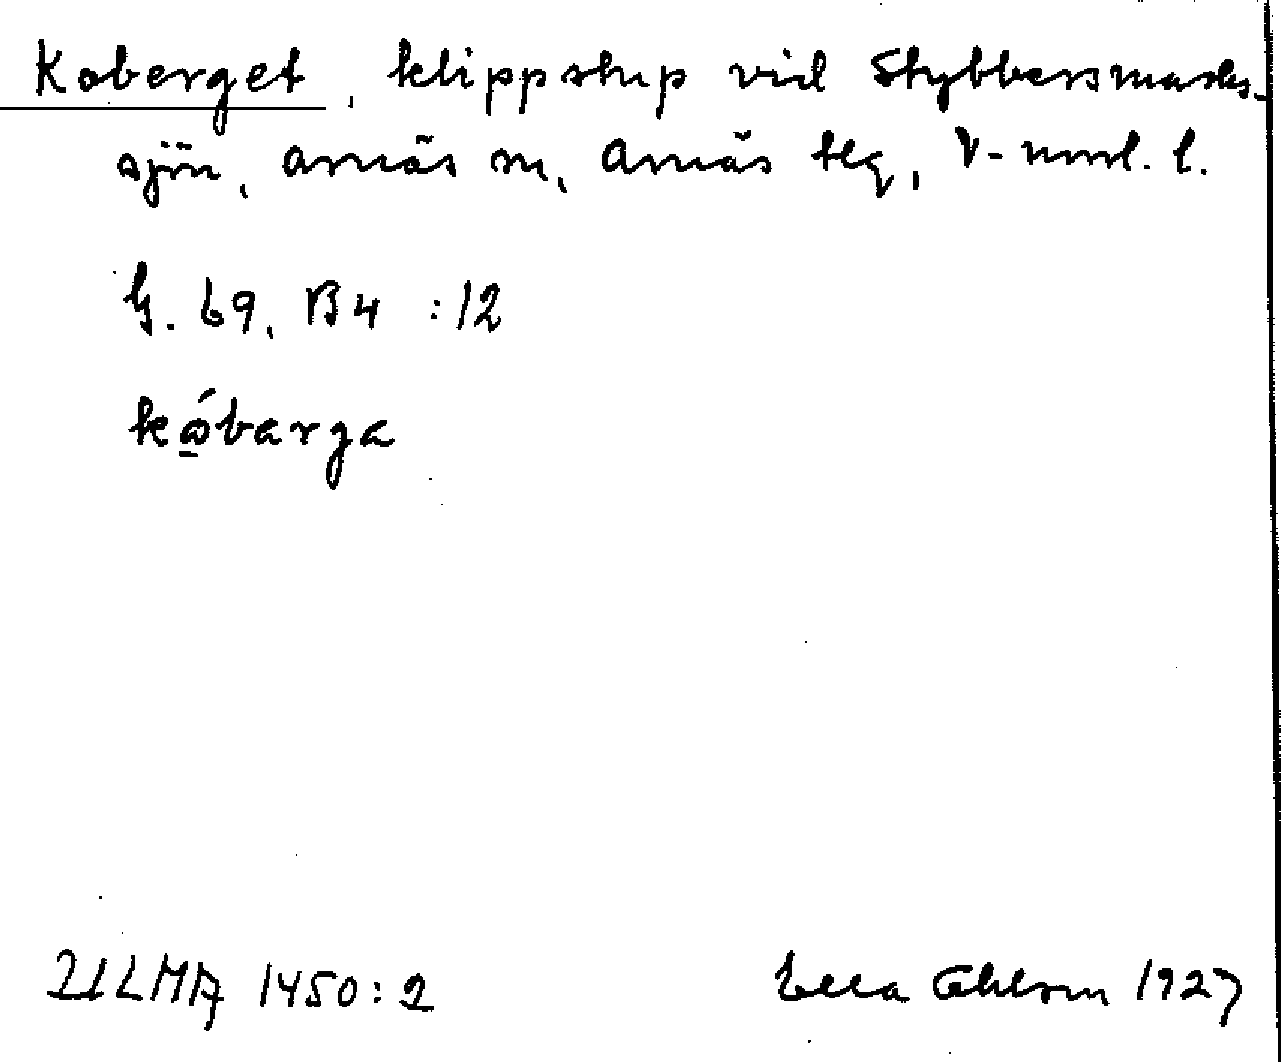 Koberget, klippstup vid Stybbersmarks-
sjön, Arnäs sn, Arnäs tlg, V-norrl. l.
G. 69, B4 :12
kǫ́barga
ULMA 1450:2
Ella Ohlson 1927